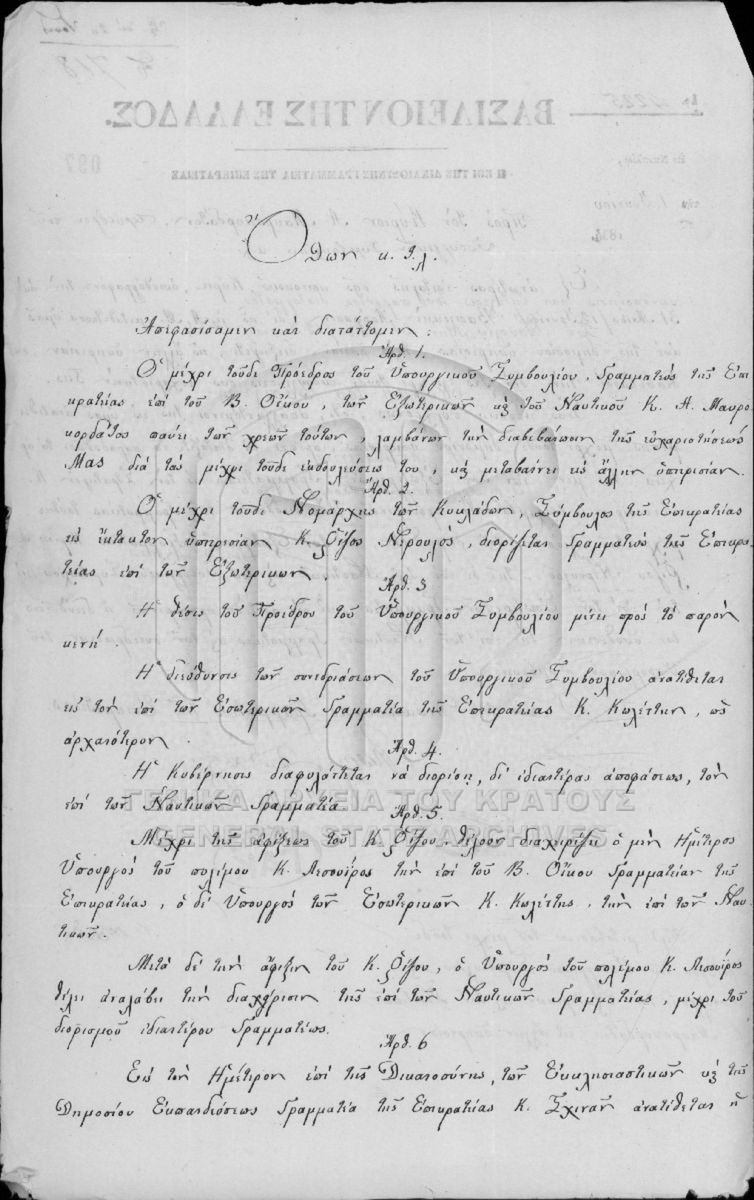 Ὄθων κ.τ.λ.
Ἀπεφασίσαμεν καὶ διατάττομεν:
Ἄρθ. 1.
Ὁ μέχρι τοῦδε Πρόεδρος τοῦ Ὑπουργικοῦ Συμβουλίου, Γραμματεὺς τῆς Ἐπι
κρατείας ἐπὶ τοῦ Β. Οἴκου, τῶν Ἐξωτερικῶν κὲ τοῦ Ναυτικοῦ Κ. Α. Μαυρο
κορδάτος παύει τῶν χρεῶν τούτων, λαμβάνων τὴν διαβεβαίωσιν τῆς εὐχαριστήσεώς
Μας διὰ τὰς μέχρι τοῦδε ἐκδουλεύσεις του, κὲ μεταβαίνει εἰς ἄλλην ὑπηρεσίαν.
Ἄρθ. 2.
Ὁ μέχρι τοῦδε Νομάρχης τῶν Κυκλάδων, Σύμβουλος τῆς Ἐπικρατείας
εἰς ἔκτακτον ὑπηρεσίαν Κ. Ῥίζος Νερουλός, διορίζεται Γραμματεὺς τῆς Ἐπικρα
τείας ἐπὶ τῶν Ἐξωτερικῶν.
Ἄρθ. 3
Ἡ θέσις τοῦ Προέδρου τοῦ Ὑπουργικοῦ Συμβουλίου μένει πρὸς τὸ παρὸν
κενή.
Ἡ διεύθυνσις τῶν συνεδριάσεων τοῦ Ὑπουργικοῦ Συμβουλίου ἀνατίθεται
εἰς τὸν ἐπὶ τῶν Ἐσωτερικῶν Γραμματέα τῆς Ἐπικρατείας Κ. Κωλέττην, ὡς
ἀρχαιότερον.
Ἄρθ. 4.
Ἡ Κυβέρνησις διαφυλάττεται νὰ διορίσῃ, δι' ἰδιαιτέρας ἀποφάσεως, τὸν
ἐπὶ τῶν Ναυτικῶν Γραμματέα.
ΓΕΝΙΚΑ ΑΡΧΕΙΑ ΤΟΥ ΚΡΑΤΟΥΣ
Ἄρθ. 5.
GENERAL STATE ARCHIVES
Μέχρι τῆς ἀφίξεως τοῦ Κ. Ῥίζου, θέλουν διαχειρίζει ὁ μὲν Ἡμέτερος
Ὑπουργὸς τοῦ πολέμου Κ. Λεσουίρος τὴν ἐπὶ τοῦ Β. Οἴκου Γραμματείαν τῆς
Ἐπικρατείας, ὁ δὲ Ὑπουργὸς τῶν Ἐσωτερικῶν Κ. Κωλέττης, τὴν ἐπὶ τῶν Ναυ
τικῶν.
Μετὰ δὲ τὴν ἄφιξιν τοῦ Κ. Ῥίζου, ὁ Ὑπουργὸς τοῦ πολέμου Κ. Λεσουίρος
θέλει ἀναλάβει τὴν διαχείρισιν τῆς ἐπὶ τῶν Ναυτικῶν Γραμματείας, μέχρι τοῦ
διορισμοῦ ἰδιαιτέρου Γραμματέως.
Ἄρθ. 6
Εἰς τὸν Ἡμέτερον ἐπὶ τῆς Δικαιοσύνης, τῶν Ἐκκλησιαστικῶν κὲ τῆς
Δημοσίου Ἐκπαιδεύσεως Γραμματέα τῆς Ἐπικρατείας Κ. Σχινᾶν ἀνατίθεται ἡ